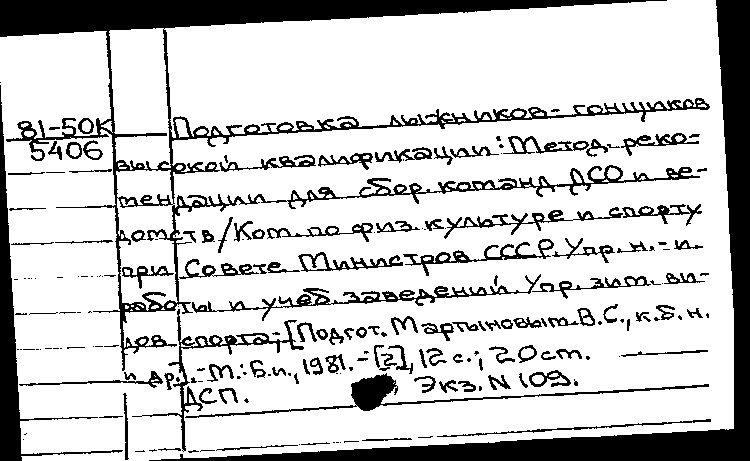 81-50К
5406
Подготовка лыжников-гонщиков
высокой квалификации: Метод. реко-
мендации для сбор. команд ДСО и ве-
домств/Ком. по физ. культуре и спорту
при Совете Министров СССР. Упр. н.-и.
работы и учеб. заведений. Упр. зим. ви-
дов спорта; [Подгот. Мартыновым В.С., к.б.н.
и др.].-М.: Б.и., 1981.-[2], 12 с.; 20 см.
ДСП. Экз. N 109.